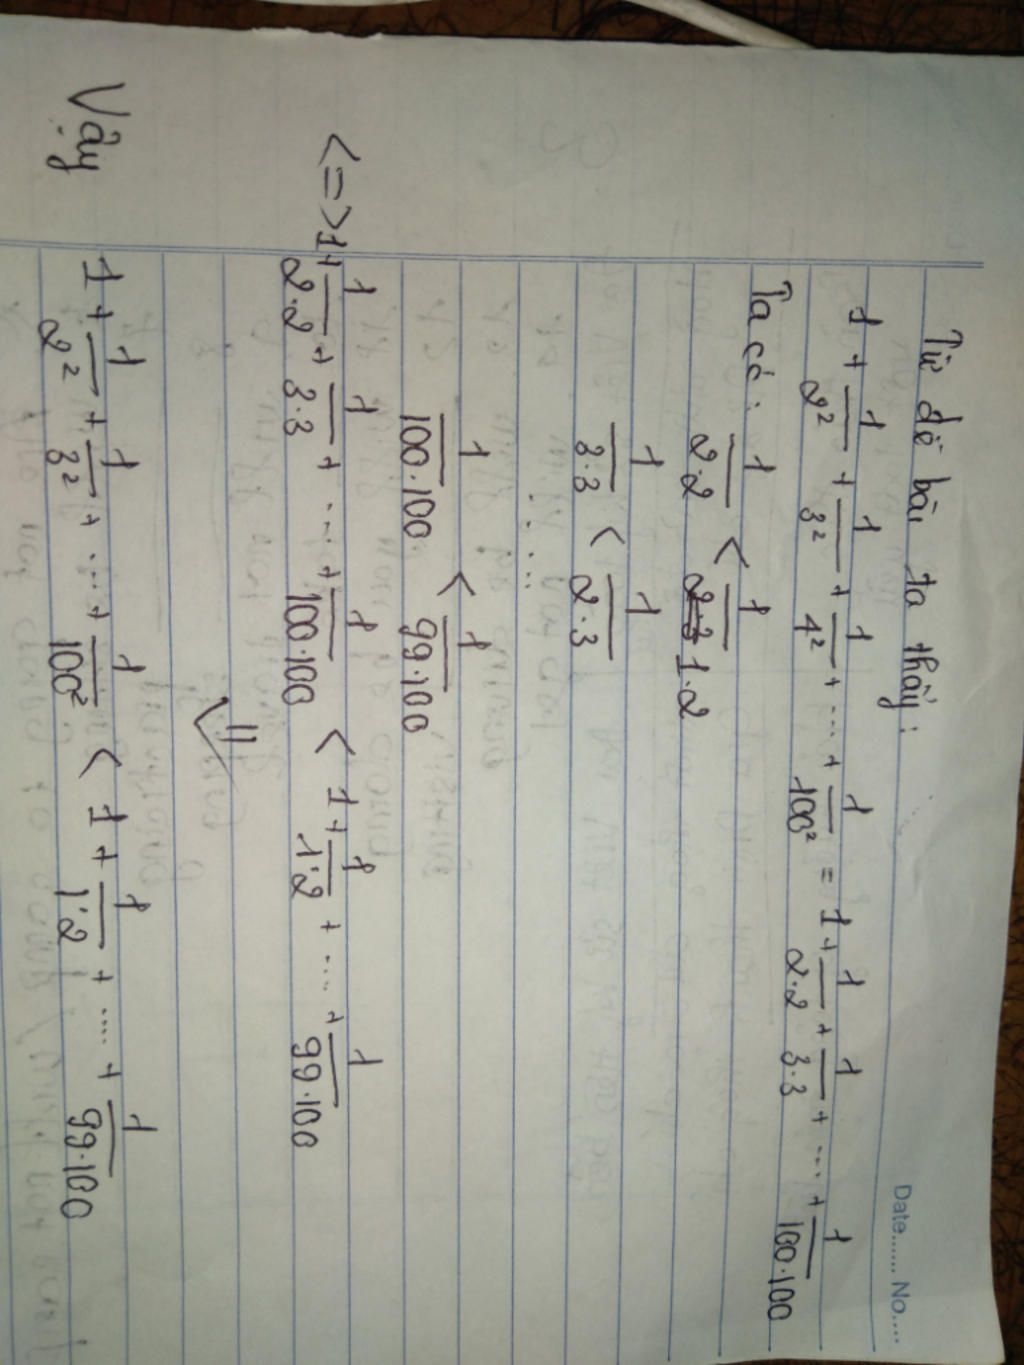 Date...... No....
Từ đề bài ta thấy:
1 + 1/2² + 1/3² + 1/4² + ... + 1/100² = 1 + 1/2.2 + 1/3.3 + ... + 1/100.100
Ta có: 1/2.2 < 1/1.2
1/3.3 < 1/2.3
......
1/100.100 < 1/99.100
<=> 1 + 1/2.2 + 1/3.3 + ... + 1/100.100 < 1 + 1/1.2 + ... + 1/99.100
⇓
Vậy 1 + 1/2² + 1/3² + ... + 1/100² < 1 + 1/1.2 + .... + 1/99.100